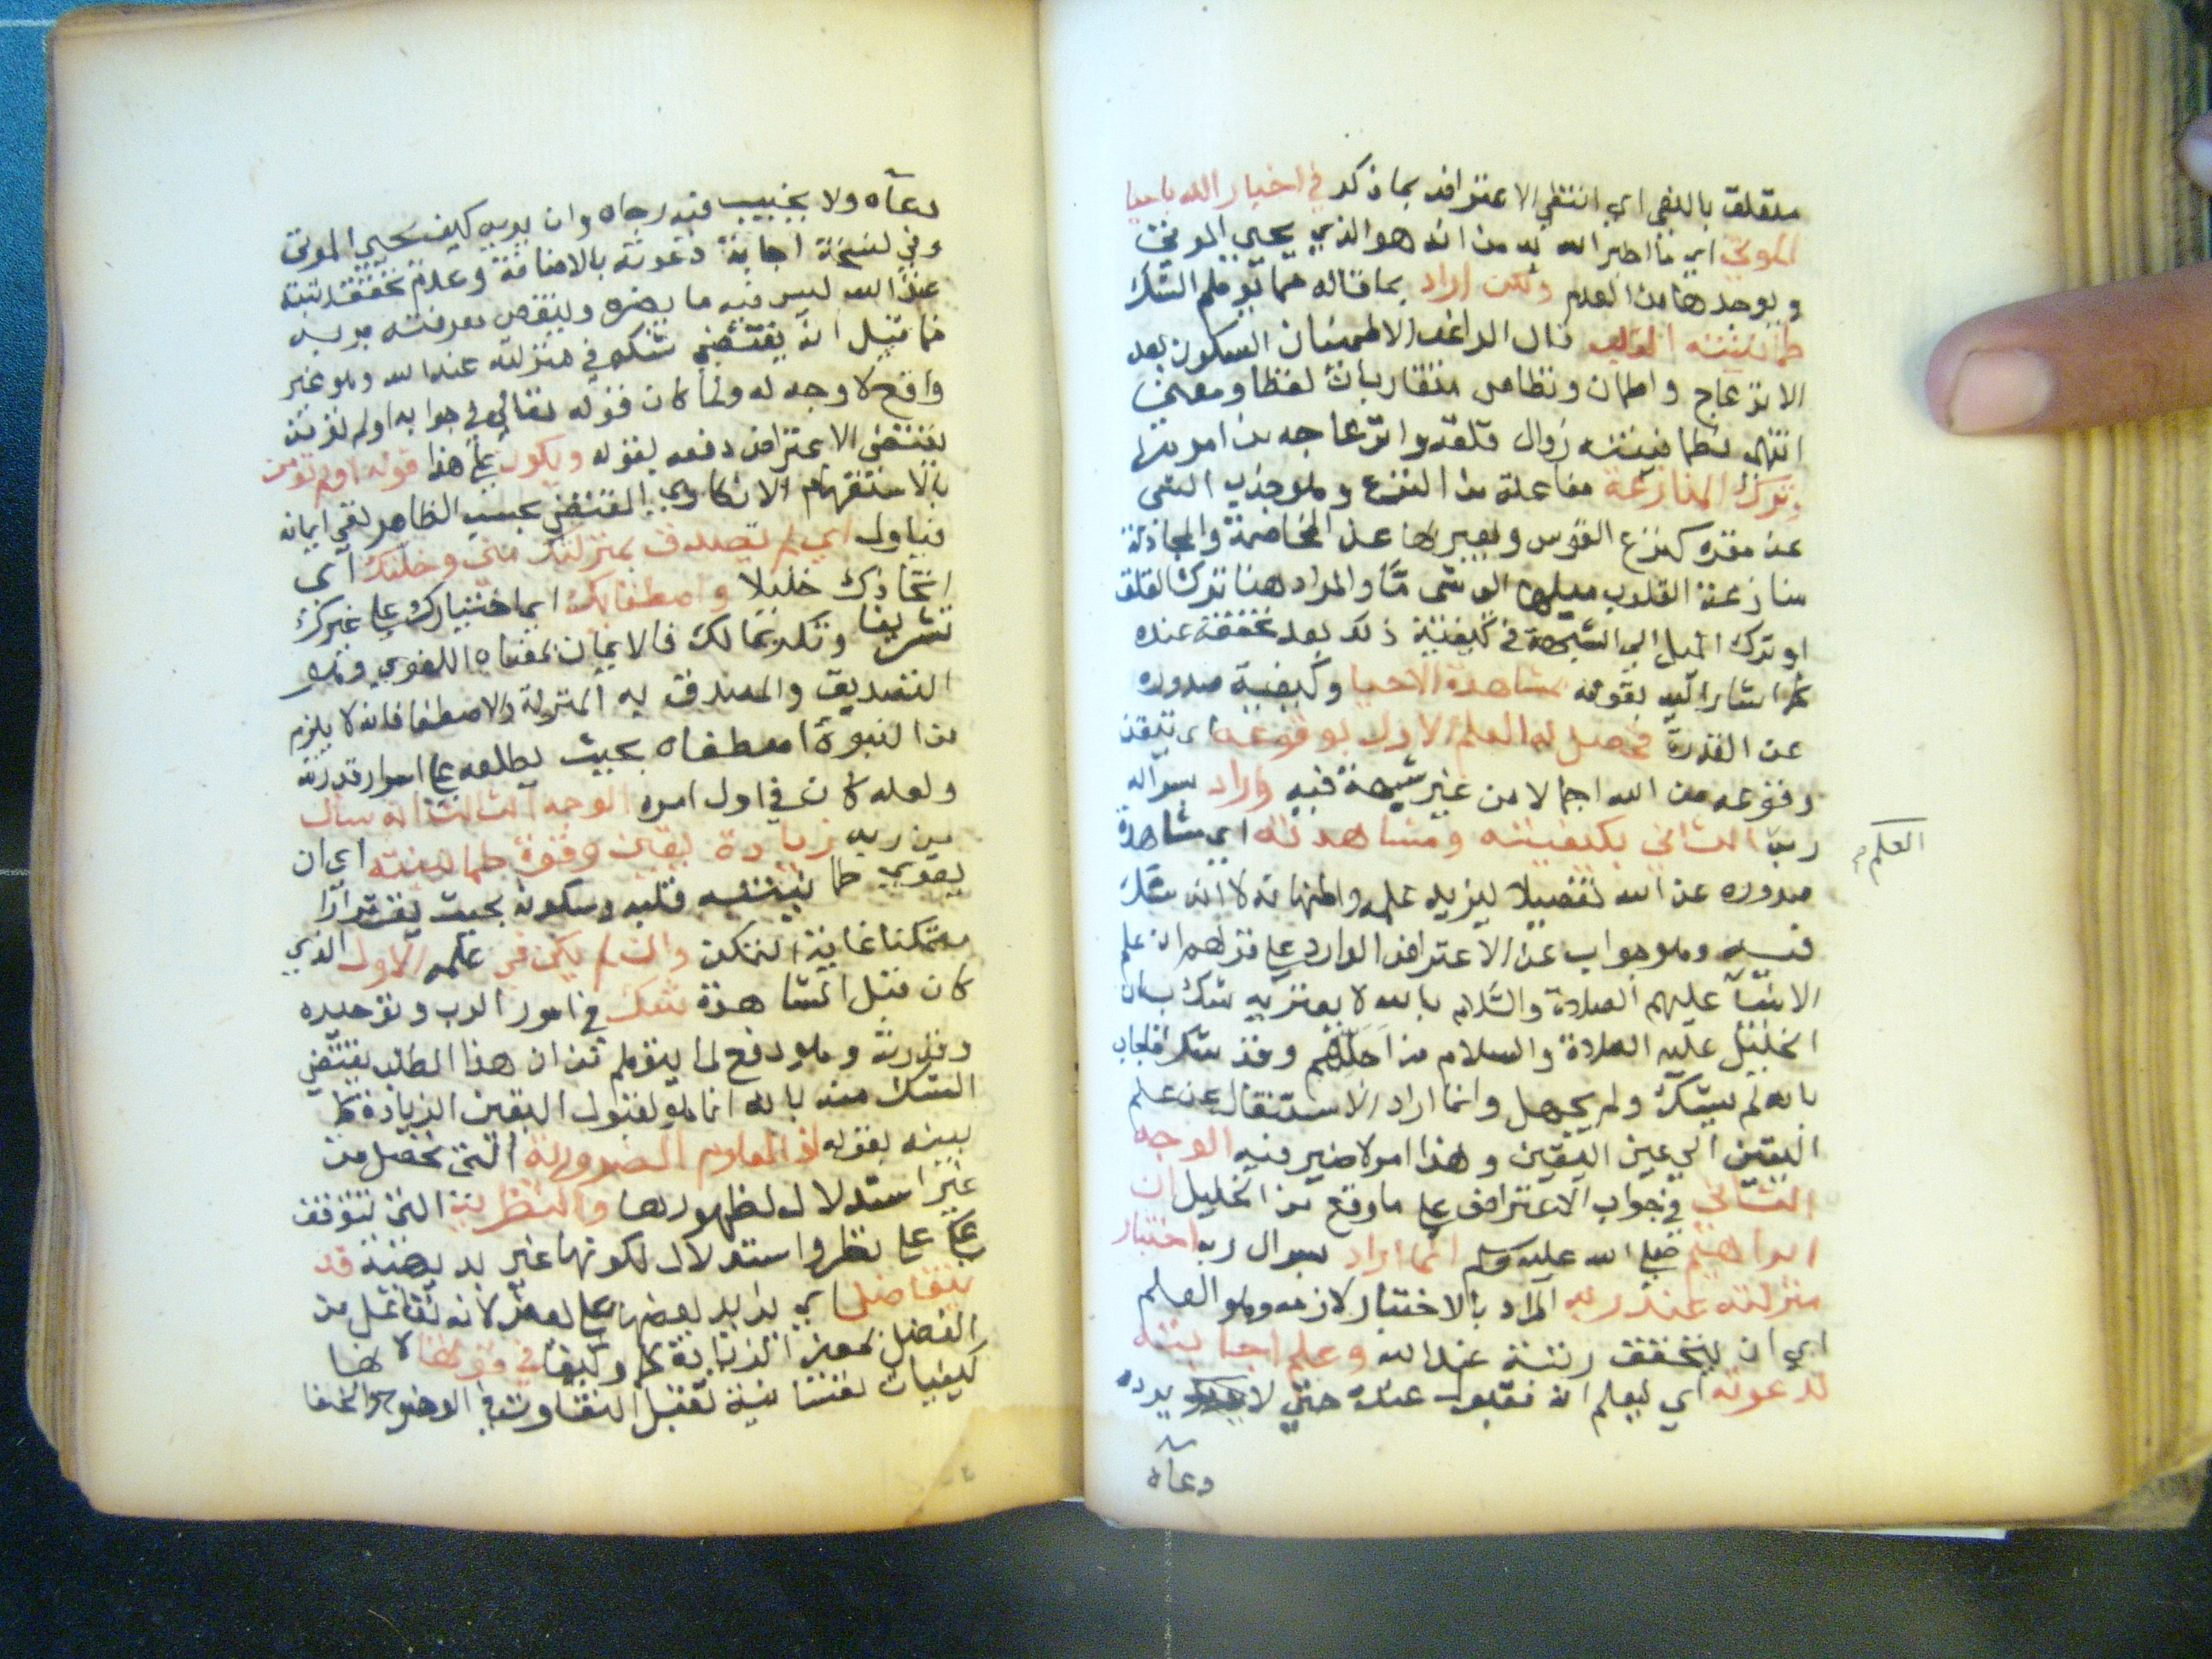 متعلق بالنفي اي انتفي الاعتراض بما ذكر في اخبار الله باحيا
الموتي اي ما اخبر الله به من انه هو الذي يحيي الموتي
ويوجدها من العدم ولكن اراد بما قاله مما يوهم الشك
طمانينة القلب قال الراغب الاطمينان السكون بعد
الانزعاج واطمان وتطامن متقاربان لفظا ومعني
انتهي فطمانينته زوال قلقه وانزعاجه من امر
وترك المنازعة مفاعلة من النزع وهو جذب الشي
عن مقره كنزع القوس ويعبر بها عن المخاصمة والمجاذلة
منازعة القلوب ميلها الي شي مّا والمراد هنا ترك القلق
او ترك الميل الي الشبهة في كيفية ذلك بعد تحققه عنده
كما اشار اليه بقوله بمشاهدة الاحيا وكيفية صدوره
عن القدرة فحصل له العلم الاول بوقوعه اي تيقن
وقوعه من الله اجمالا من غير شبهة فيه واراد بسواله
ربه الثاني بكيفيته ومشاهدته اي مشاهدة
العلم
صدوره عن الله تفصيلا ليزيد علمه واطمئنانه لا انه شك
فيه وهو جواب عن الاعتراض الوارد علي قولهم ان علم
الانبيآ عليهم الصلاة والسّلام بالله لا يعتريه شك بان
الخليل عليه الصلاة والسلام من اجلّهم وقد شك فاجاب
بانه لم يشك ولم يجهل وانما اراد الاستقال عن علم
اليقين الي عين اليقين وهذا امر لا ضير فيه الوجه
الثاني في جواب الاعتراض علي ما وقع من الخليل ان
ابراهيم صلي الله عليه وسلم انما اراد بسوال ربه اختبار
منزلته عند ربه المراد بالاختبار لازمه وهو العلم
اي ان يتحقق رتبته عند الله وعلم اجابته
لدعوته اي ليعلم انه مقبول عنده حتي لا يرده
دعآه
دعآه ولا يخيب فيه رجاه وان يريه كيف يحيي الموتي
وفي نسخة اجابة دعوته بالاضافة وعدم تحقق رتبته
عند الله ليس فيه ما يضره وينقص معرفته بربه
فما قيل انه يقتضي شكه في منزلته عند الله وهو غير
واقع لا وجه له ولما كان قوله تعالي في جوابه اولم تومن
يقتضي الاعتراض دفعه بقوله ويكون علي هذا قوله اولم تومن
بالاستفهام الانكاري المقتضي بحسب الظاهر نفي ايمانه
فياول اي لم تصدق بمنزلتك مني وخلتك اي
اتخاذك خليلا واصطفائك اي اختيارك علي غيرك
تشريفا وتكريما لك فالايمان بمعناه اللغوي وهو
التصديق والمصدق به المنزلة والاصطفا فانه لا يلزم
من النبوة اصطفاه بحيث يطلعه علي اسرار قدرته
ولعله كان في اول امره الوجه الثالث انه سال
من ربه زيادة يقين وقوة طمانينته اي ان
يقوي طمانينته قلبه وسكونه بحيث يقر قرارا
متمكنا غاية التمكن وان لم يكن في علمه الاول الذي
كان قبل المشاهدة شك في امور الرب وتوحيده
وقدرته وهو دفع لما يتوهم من ان هذا الطلب يقتضي
الشك منه بانه انما هو لقبول اليقين الزيادة كما
بينه بقوله اذ العلوم الضرورية التي تحصل من
غير استدلال لظهورها والنظرية التي تتوقف
علي نظر واستدلال لكونها غير بديهية قد
تتفاضل اي يزيد بعضها علي بعض لانه تفاعل من
الفضل بمعني الزيادة كما وكيفا في قوتها لا
كيفيات نفسانية تقبل التفاوت في الوضوح والخفا